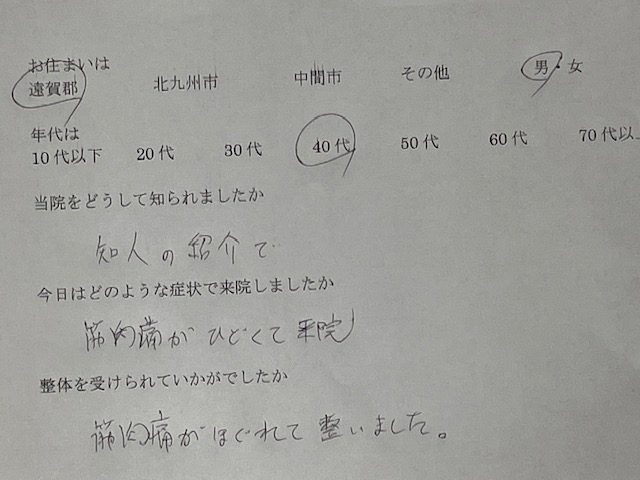 お住まいは
遠賀郡 北九州市 中間市 その他 男・女
年代は
10代以下 20代 30代 40代 50代 60代 70代以
当院をどうして知られましたか
知人の紹介で
今日はどのような症状で来院しましたか
筋肉痛がひどくて来院
整体を受けられていかがでしたか
筋肉痛がほぐれて整いました。